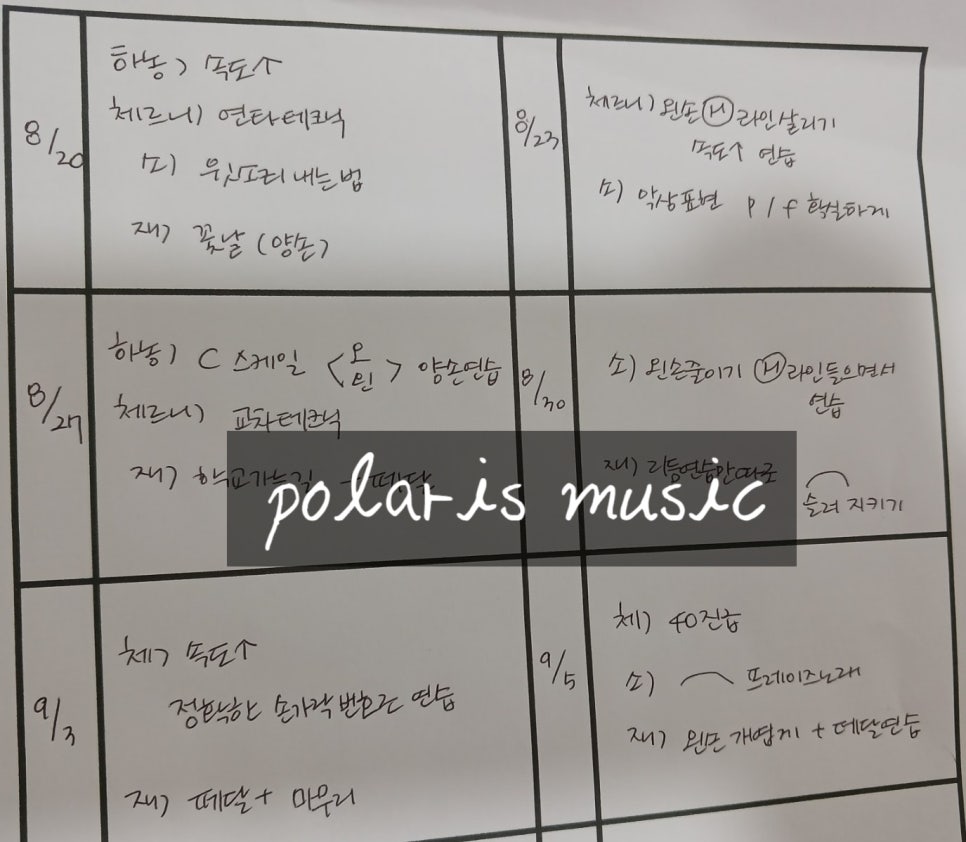 8/20
하농) 속도↑
체르니) 연타테크닉
소) 윗소리 내는법
재) 꽃날 (양손)
8/23
체르니) 왼손 Ⓗ 라인살리기
속도↑ 연습
소) 악상표현 p / f 확실하게
8/27
하농) C 스케일 < 오 왼 > 양손연습
체르니) 교차테크닉
재) 학교가는길 + 페달
8/30
소) 왼손줄이기 Ⓗ 라인들으면서
연습
재) 리듬연습만따로
슬러 지키기
polaris music
9/3
체) 속도↑
정확한 손가락번호로 연습
재) 페달 + 마무리
9/5
체) 40진급
소) ⌒ 프레이즈노래
재) 왼손 가볍게 + 페달연습